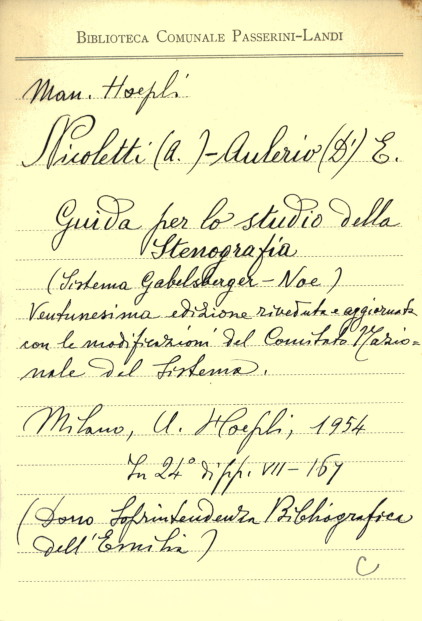 BIBLIOTECA COMUNALE PASSERINI-LANDI
Man. Hoepli
Nicoletti (A.) - Aulerio (D') E.
Guida per lo studio della
Stenografia
(Sistema Gabelsberger - Noe)
Ventunesima edizione riveduta e aggiornata
con le modificazioni del Comitato Nazio=
nale del Sistema.
Milano, U. Hoepli, 1954
In 24° di pp. VII - 167
(Dono Soprintendenza Bibliografica
dell'Emilia)
C